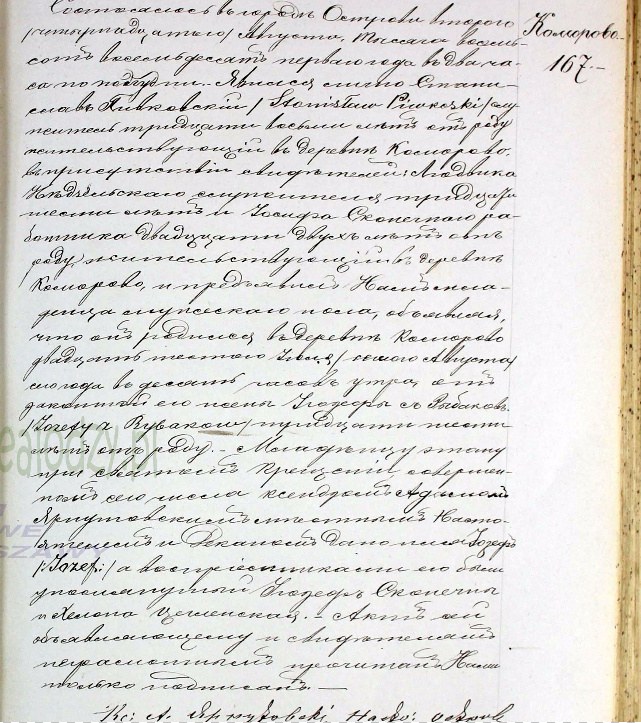 Состоялось въ городѣ Островѣ второго
Коморово
167.
/четырнадцатого/ Августа, тысяча восемь
сотъ восемьдесятъ перваго года въ два ча-
са по полудни. Явился лично Стани-
славъ Пивковскій /Stanisław Piwkoski/ слу-
житель тридцати восьми лѣтъ отъ роду
жительствующій въ деревнѣ Коморово,
въ присутствіи свидѣтелей: Людвика
служителя тридцати
шести лѣтъ и Іосифа Сконечнаго ра-
ботника двадцати двухъ лѣтъ отъ
роду, жительствующихъ въ деревнѣ
Коморово, и предъявилъ Намъ мла-
денца мужескаго пола, объявляя,
что онъ родился въ деревнѣ Коморово
двадцать шестого Іюля /седьмого Августа/
сего года въ десять часовъ утра, отъ
законной его жены Іозефы съ Рыбаковъ
/Józefy z Rybaków/ тридцати шести
лѣтъ отъ роду. Младенцу этому
при святомъ крещеніи совершен-
номъ сего числа ксендзомъ Адамомъ
мѣстнымъ Насто-
ятелемъ и Деканомъ дано имя Іозефъ
/:Józef:/ а воспріемниками его были
упомянутый Іозефъ Сконечны
и Хелена
Актъ сей
объявляющему и свидѣтелямъ
неграмотнымъ прочитанъ Нами
только подписанъ.
Кс: А.